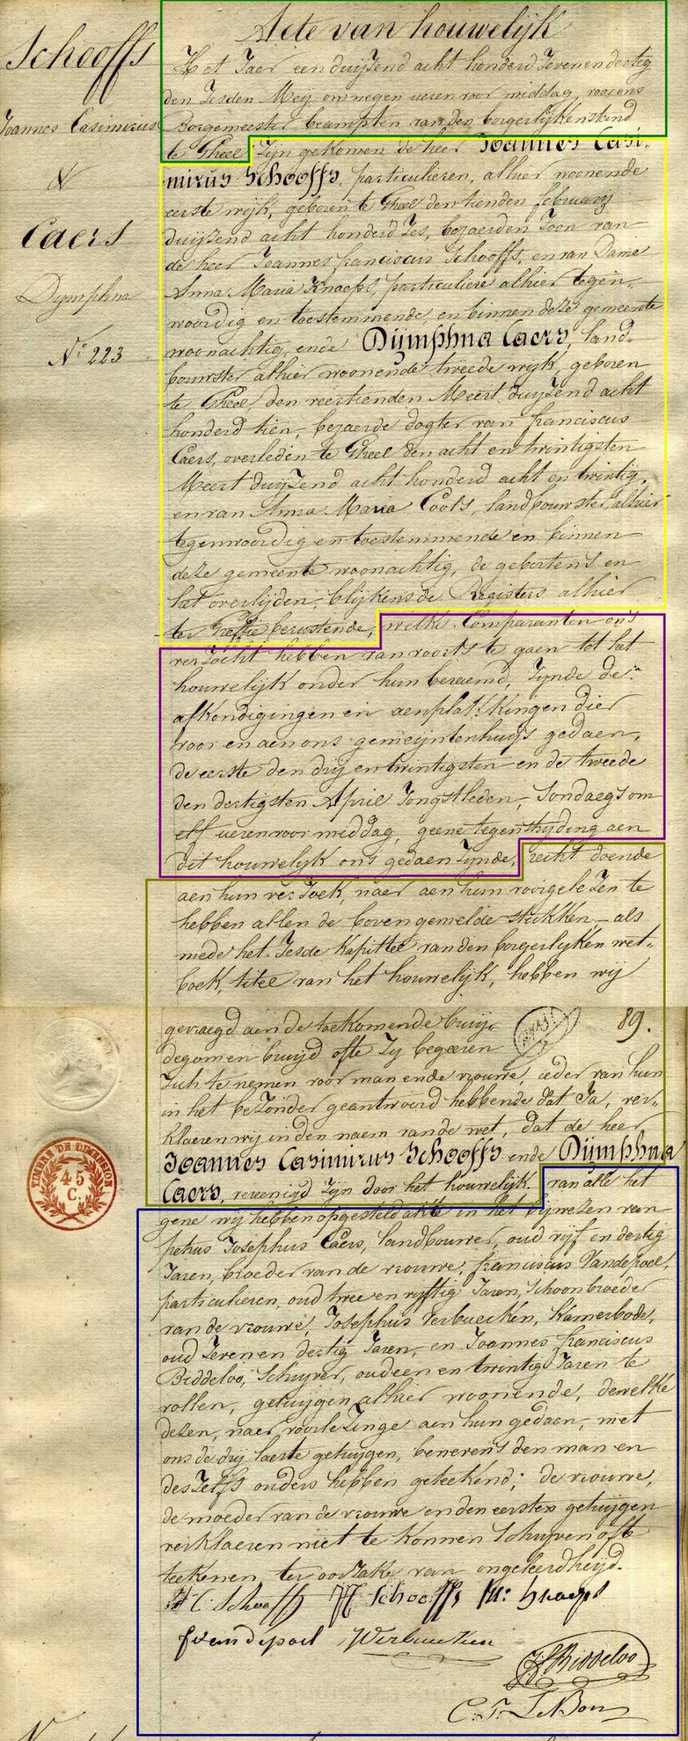 Schooffs
Joannes Casimirus
&
Caers
Dymphna
N.º 223
Acte van houwelijk
Het Jaer een duijzend acht honderd Zevenendertig
den Zesden Meij om negen ueren voor middag, voor ons
Borgemeester beampten van den borgerlijkenstand
te Gheel, Zijn gekomen de heer Joannes Casi-
mirus Schooffs, particulieren, alhier woonende
eerste wijk, geboren te Gheel den tienden february
duijzend acht honderd Zes, bejaerden Zoon van
de heer Joannes franciscus Schooffs, en van Dame
Anna Maria Knaeps, particuliere alhier tegen-
woordig en toestemmende en binnen deze gemeente
woonachtig, ende Dijmphna Caers, land-
bouwster alhier woonende tweede wijk, geboren
te Gheel den veertienden Meert duijzend acht
honderd tien, bejaerde dogter van franciscus
Caers, overleden te Gheel den acht en twintigsten
Meert duijzend acht honderd acht en twintig,
en van Anna Maria Cools, landbouwster alhier
tegenwoordig en toestemmende en binnen
deze gemeente woonachtig, de geboortens en
hat overlijden, blijkens de Registers alhier
ter Greffie berustende, welke Comparanten ons
verzocht hebben van voorts te gaen tot hat
houwelijk onder hun beraemd, Zijnde de
afkondigingen en aenplakkingen dier
voor en aen ons gemeijntenhuijs gedaen,
de eerste den drij en twintigsten en de tweede
den dertigsten April Jongstleden, Sondaegs om
elf ueren voor middag, geene tegenstrijding aen
dit houwelijk ons gedaen Zijnde, recht doende
aen hun verzoek, naer aen hun voorgelezen te
hebben allen de bovengemelde stukken als
mede het Zesde kapittel van den borgerlijken wet-
boek, titel van het houwelijk, hebben wij
gevraegd aen de toekomende bruij-
89.
degom en bruijd ofte Zij begeeren
Zich te nemen voor man ende vrouwe, ieder van hun
in het bezonder geantwoord hebbende dat Ja, ver-
klaeren wij in den naem van de wet, dat de heer
Joannes Casimirus Schooffs ende Dijmphna
Caers, revenigd Zijn door het houwelijk, van alle het
gene wij hebben opgesteld akte in het bijwezen van
petrus Josephus Caers, landbouwer, oud vijf en dertig
Jaren, broeder van de vrouwe, franciscus Vandepoel,
particulieren, oud twee en vijftig Jaren, Schoonbroeder
van de vrouwe, Josephus Verbuecken, Kamerbode,
oud Zeven en dertig Jaren, en Joannes franciscus
Biddeloo, Schrijver, oud een en twintig Jaren te
vollen, getuijgen alhier woonende, dewelke
dezen, naer voorlezinge aen hun gedaen, met
ons de drij laeste getuijgen, benevens den man en
deszelfs ouders hebben geteekend; de vrouwe,
de moeder van de vrouwe en den eersten getuijgen
verklaeren niet te konnen Schrijven ofte
teekenen, ter oorzake van ongeleerdheijd.
J C Schooffs JF Schooffs M: Knaeps
fvandepoel Verbuecken
JF Biddeloo
C. F. Le Bon
TIMBRE DE DIMENSION
45
C.